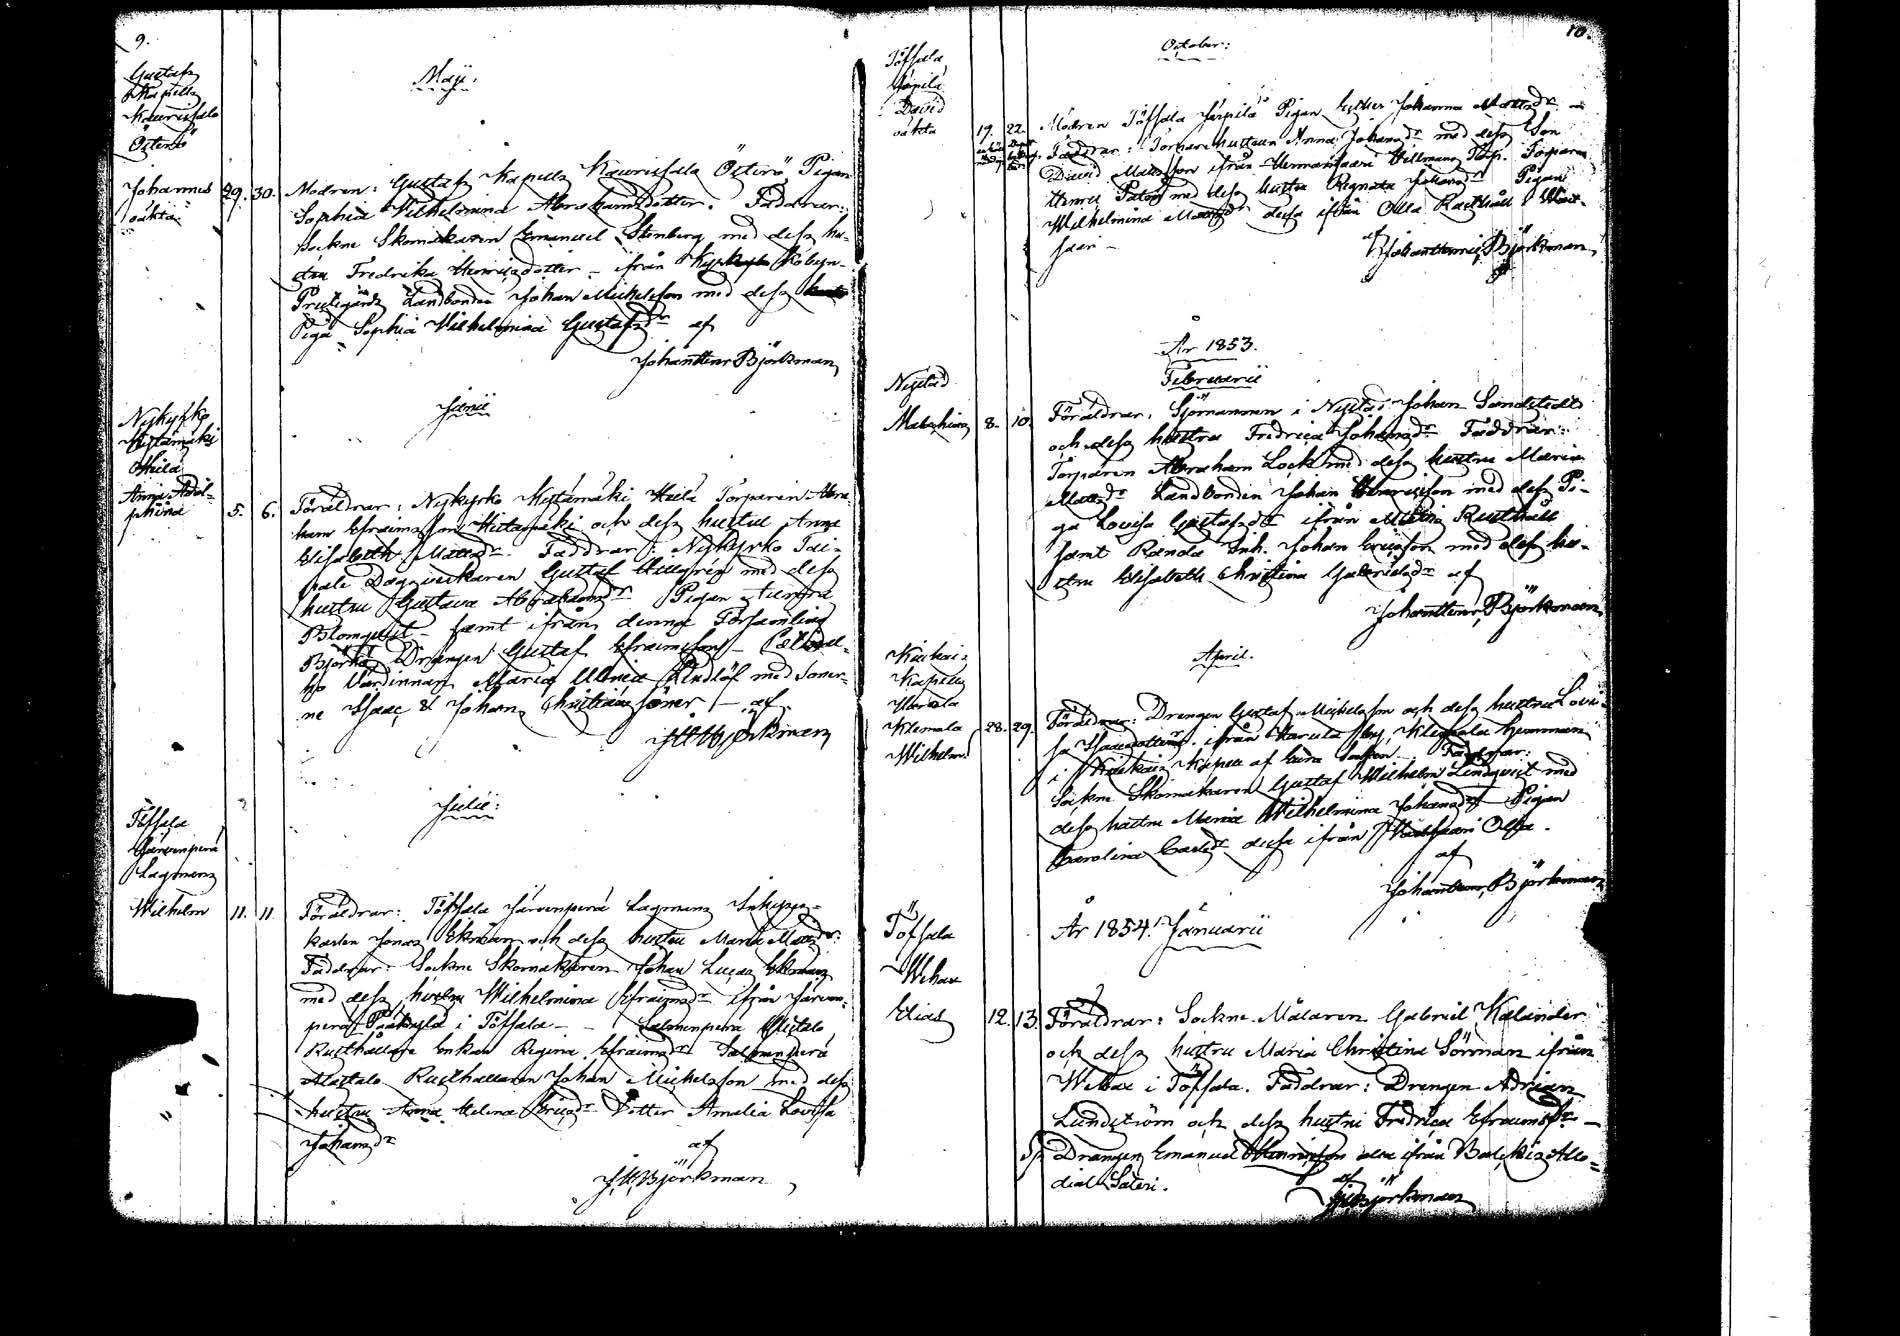 9.
Gustafs
Kapells
Kaurissalo
Österö
Johannes
oäkta
29. 30.
Maji.
Modren: Gustafs Kapells Kaurissala Österö Pigan
Sophia Wilhelmina Abrahamsdotter. Faddrar:
Sockne Skomakaren Emanuel Stenberg med dess hu-
stru Fredrika Henricsdotter – ifrån
Landbonden Johan Michelsson med dess
Piga Sophia Wilhelmina Gustafsdr af
Johan Henr Björkman
Junii
Nykyrko
Hystämäki
Heilä
Anna Adol-
phina
5. 6.
Föräldrar: Nykyrko Hystämäki Heilä Torparen Abra-
ham Efraimsson och dess hustru Anna
Elisabeth Mattsdr. Faddrar: Nykyrko Tai-
pale Dagsverkaren Gustaf Hellgrén med dess
hustru Gustava Abrahamsdr Pigan
Blomqvist – samt ifrån denna Församling
Björkö Drängen Gustaf Efraimsson –
Värdinnan Maria Ulrica Lindlöf med Söner-
ne Isaac & Johan Christiansöner – af
J H Björkman
Julii:
Töfsala
Järvenperä
Lagmans
Wilhelm
11. 11
Föräldrar: Töfsala Järvenperä Lagmans Inhyses-
karlen Jonas Ekman och dess hustru Maria Mattsdr:
Faddrar: Sockne Skomakaren Johan Lucas Ekman
med dess hustru Wilhelmina Efraimsdr ifrån Järven-
perä i Töfsala – – Salmenperä
Rusthållare Enkan Regina Efraimsdr Salmenperä
Alastalo Rusthållaren Johan Michelsson med dess
hustru Anna Helena Ericsdr Dotter Amalia Lovisa
Johansdr
af
J. H. Björkman
10.
October:
Töfsala
Järpilä
David
oäkta
19. 22.
Modren Töfsala Järpilä Pigan Esther Johanna Mattsdr –
Faddrar: Torpare hustrun Anna Johansdr med dess Son
David Mattsson ifrån Hermansaari Hellmans Torp. Torparen
Henric med dess hustru Regina Johansdr Pigan
Wilhelmina Mattsdr dessa ifrån Olla Rusthåll i Wart-
saari –
af
Johan Henric Björkman
År 1853.
Februarii
Nystad
Mathias
8. 10.
Föräldrar: Sjömannen i Nystad Johan Sandstedt
och dess hustru Fredrica Johansdr Faddrar:
Torparen Abraham Lock med dess hustru Maria
Mattsdr Landbonden Johan Henricsson med dess Pi-
ga Lovisa Gustafsdr ifrån Rusthåll
samt Randa Inh. Johan Ericsson med dess hu-
stru Elisabeth Christina Gabrielsdr af
Johan Henr. Björkman
April.
Kiukais
Kapells
Harola
Klemala
Wilhelm
28. 29.
Föräldrar: Drängen Gustaf Michelsson och dess hustru Lovi-
sa Isaacsdotter. ifrån Harola by Klemola hemman
i Kiukais Kapell af Eura Socken. Faddrar:
Sockne Skomakaren Gustaf Wilhelm Lindqvist med
dess hustru Maria Wilhelmina Johansdr – Pigan
Carolina Carlsdr dessa ifrån Wartsaari Olla.
af
Johan Henr. Björkman
År 1854. Januarii
Töfsala
Wehax
Elias
12. 13.
Föräldrar: Sockne Målaren Gabriel Kalander
och dess hustru Maria Christina Sörman ifrån
Wehax i Töfsala. Faddrar: Drängen Adrian
Lundström och dess hustru Fredrica Efraimsdr –
Drängen Emanuel Henricsson alla ifrån Allo-
dial Säteri.
af
J H Björkman